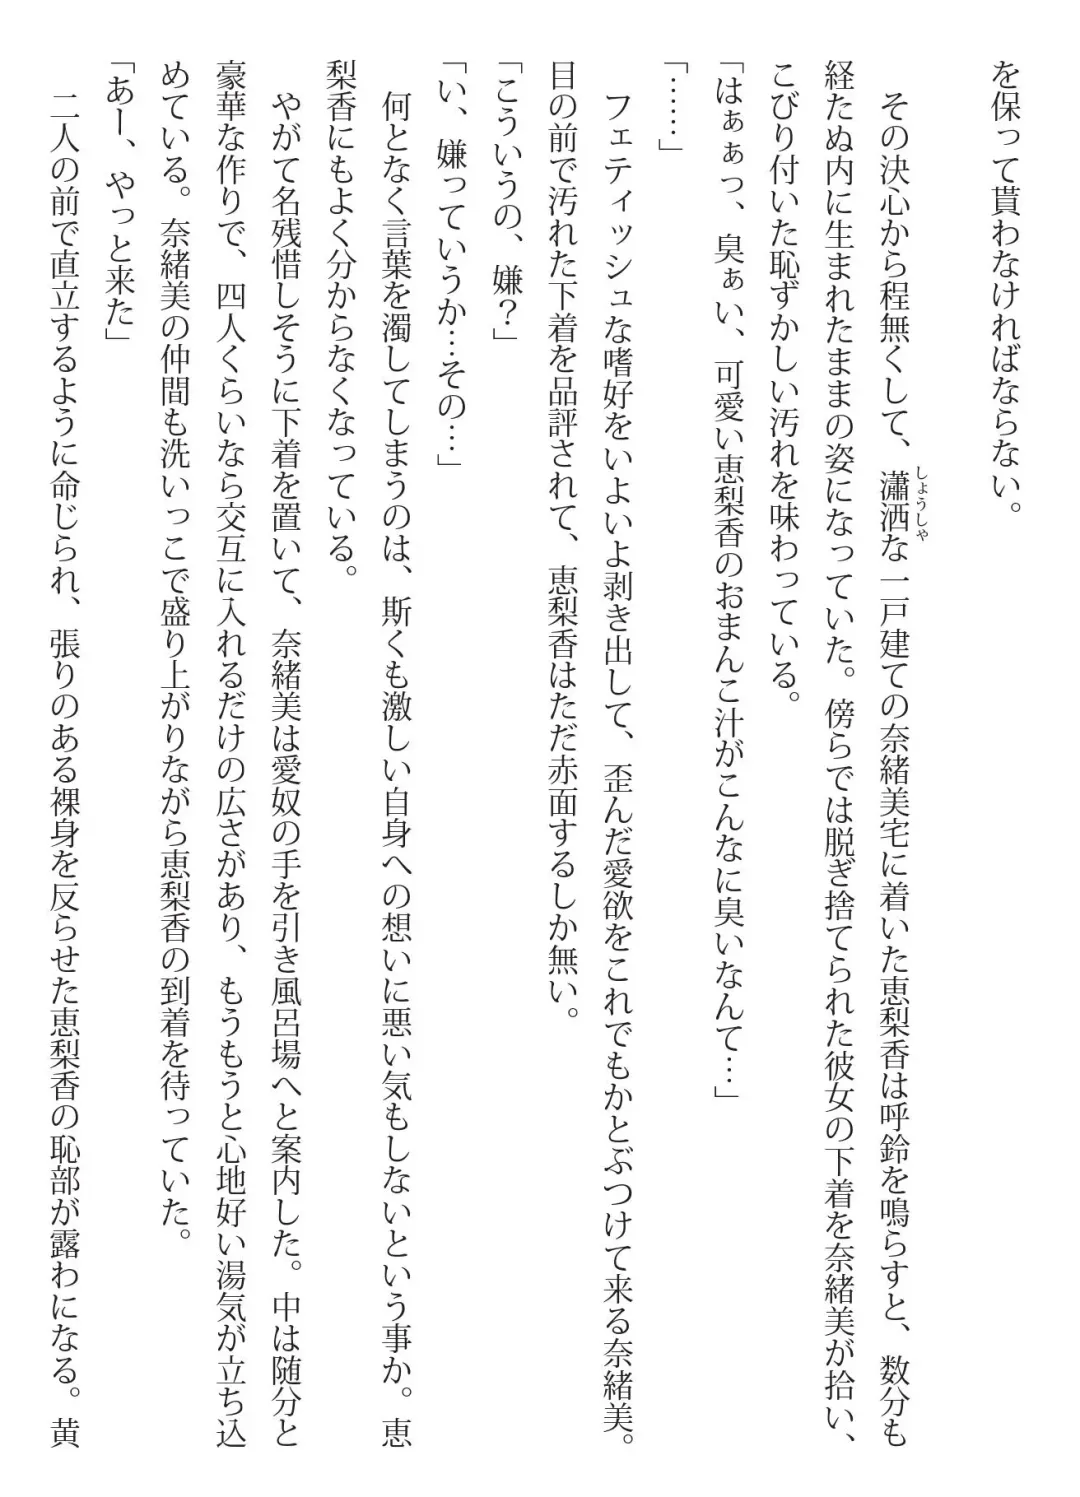 を保って貰わなければならない。
その決心から程無くして、瀟洒な一戸建ての奈緒美宅に着いた恵梨香は呼鈴を鳴らすと、数分も
しょうしゃ
経たぬ内に生まれたままの姿になっていた。傍らでは脱ぎ捨てられた彼女の下着を奈緒美が拾い、
こびり付いた恥ずかしい汚れを味わっている。
「はぁぁっ、臭ぁい、可愛い恵梨香のおまんこ汁がこんなに臭いなんて…」
「……」
フェティッシュな嗜好をいよいよ剥き出して、歪んだ愛欲をこれでもかとぶつけて来る奈緒美。
目の前で汚れた下着を品評されて、恵梨香はただ赤面するしか無い。
「こういうの、嫌？」
「い、嫌っていうか…その…」
何となく言葉を濁してしまうのは、斯くも激しい自身への想いに悪い気もしないという事か。恵
梨香にもよく分からなくなっている。
やがて名残惜しそうに下着を置いて、奈緒美は愛奴の手を引き風呂場へと案内した。中は随分と
豪華な作りで、四人くらいなら交互に入れるだけの広さがあり、もうもうと心地好い湯気が立ち込
めている。奈緒美の仲間も洗いっこで盛り上がりながら恵梨香の到着を待っていた。
「あー、やっと来た」
二人の前で直立するように命じられ、張りのある裸身を反らせた恵梨香の恥部が露わになる。黄